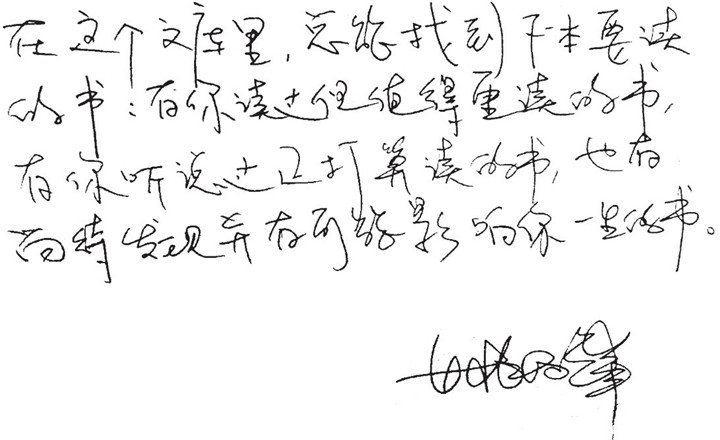 在这个文库里,总能找到下本要读
的书:有你读过但值得重读的书,
有你听说过正打算读的书,也有
尚待发现并有可能影响你一生的书。